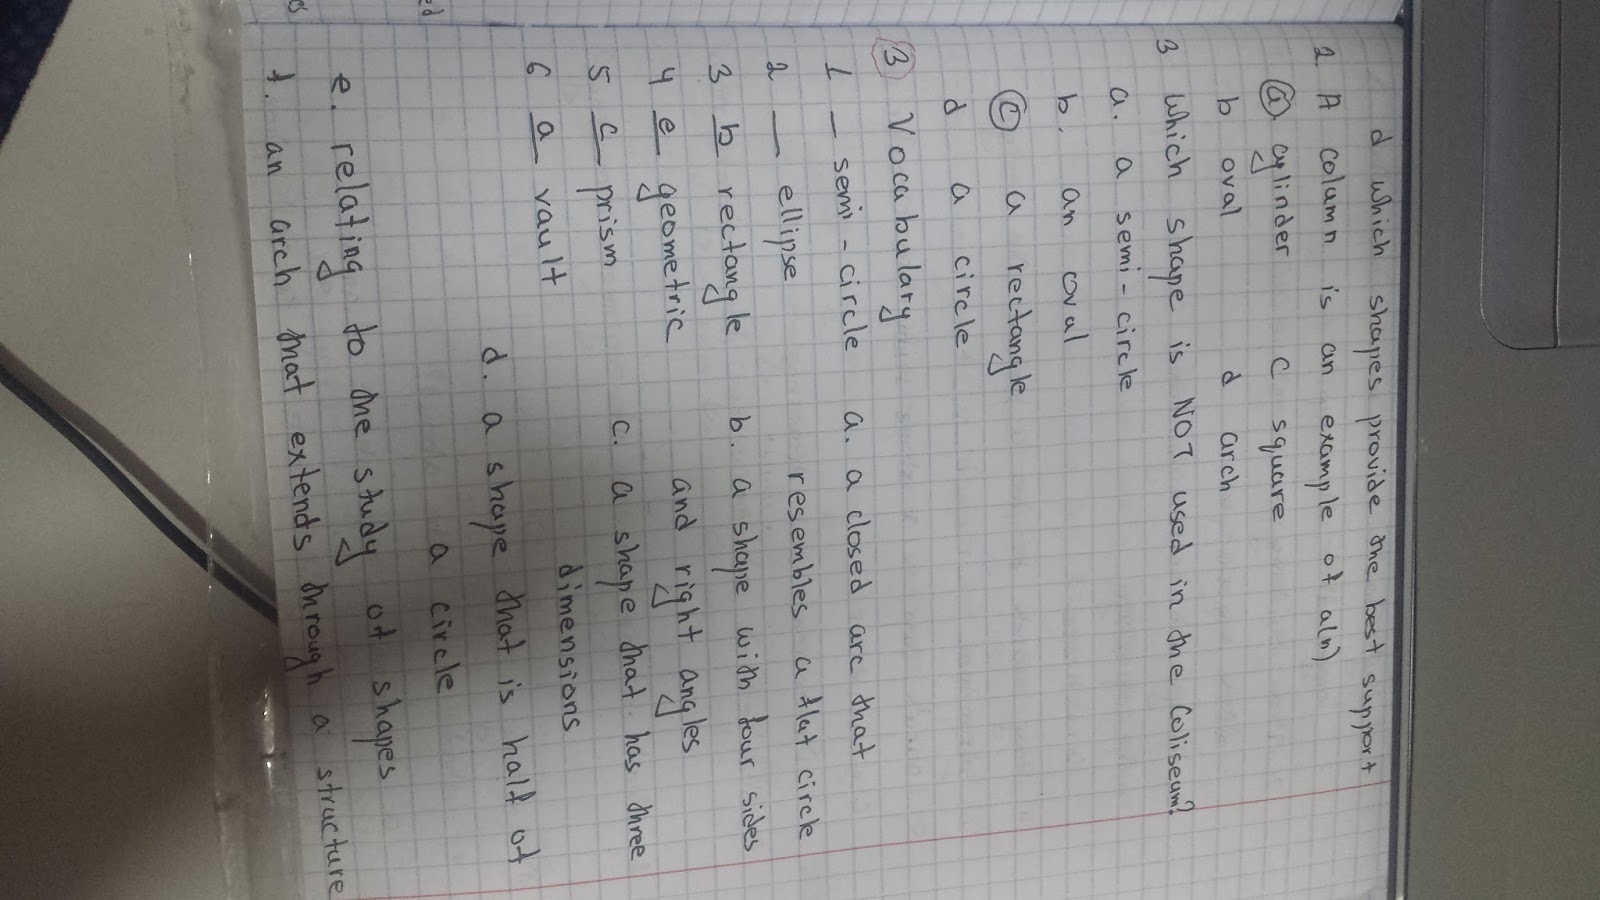 d which shapes provide the best support
2. A column is an example of a(n)
a. cylinder c square
b oval d arch
3 which shape is NOT used in the Coliseum?
a. a semi-circle
b. an oval
c a rectangle
d a circle
3 Vocabulary
1 _ semi-circle a. a closed arc that
2 __ ellipse resembles a flat circle
3 b rectangle b. a shape with four sides
4 e geometric and right angles
5 c prism c. a shape that has three
dimensions
6 a vault
d. a shape that is half of
a circle
e. relating to the study of shapes
f. an arch that extends through a structure